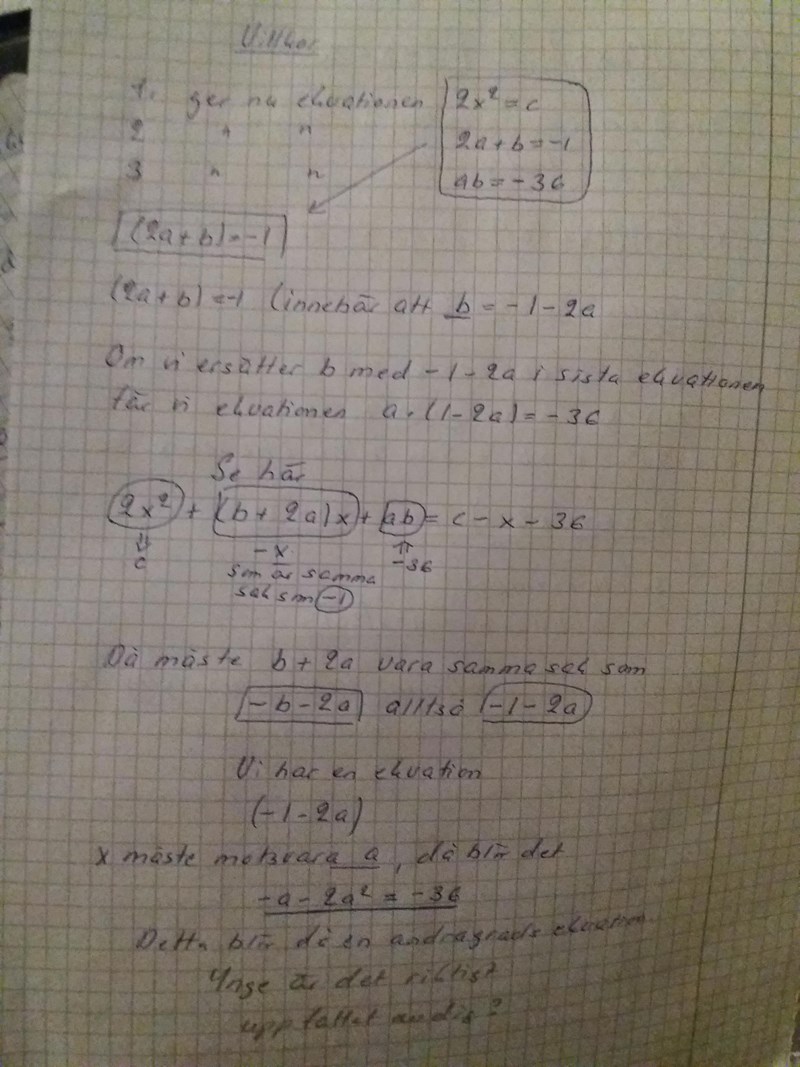 Villkor
1. ger nu ekvationen 2x² = c
2 " " 2a + b = -1
3 " " ab = -36
(2a + b) = -1
(2a + b) = -1 innebär att b = -1 - 2a
Om vi ersätter b med -1-2a i sista ekvationen
får vi ekvationen a · (1-2a) = -36
Se här
2x² + (b + 2a)x + ab = c - x - 36
⇓ -x ⇑
c som är samma -36
sak som -1
Då måste b + 2a vara samma sak som
-b - 2a alltså -1 - 2a
Vi har en ekvation
(-1 - 2a)
x måste motsvara a, då blir det
-a - 2a² = -36
Detta blir då en andragrads ekvation
Ynge är det riktigt
uppfattat av dig?